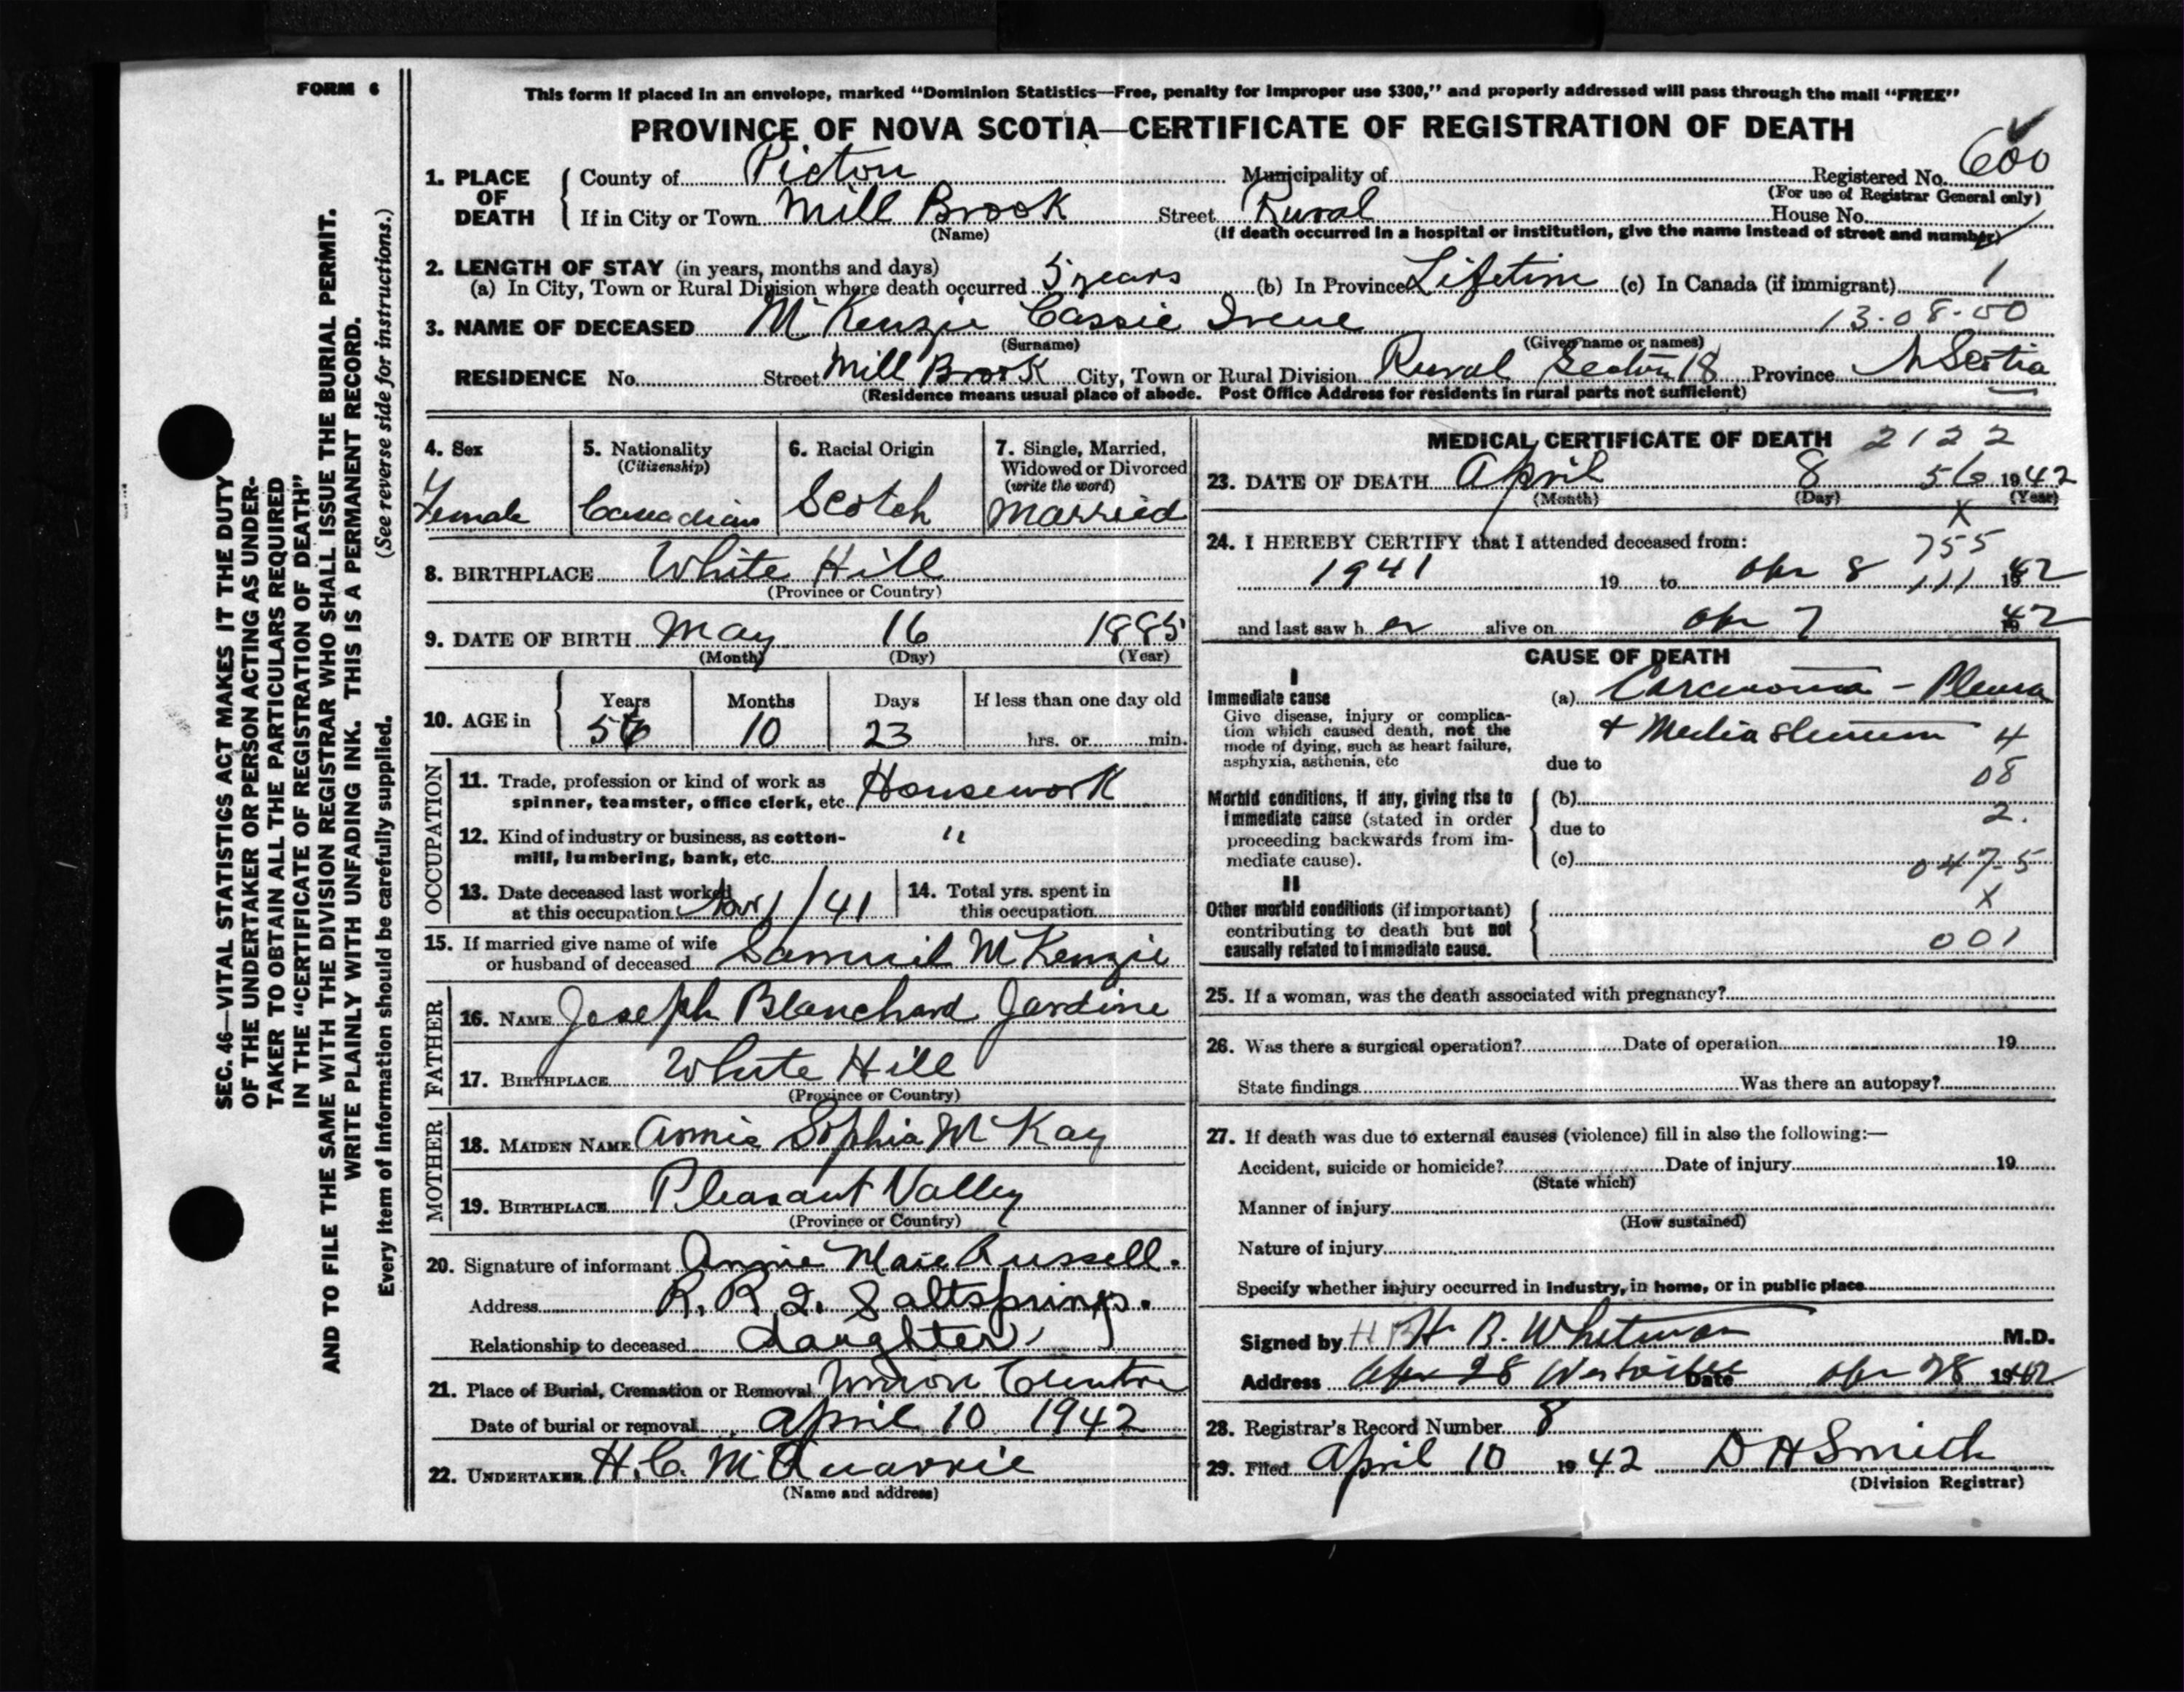 FORM 6
This form if placed in an envelope, marked "Dominion Statistics—Free, penalty for improper use $300," and properly addressed will pass through the mail "FREE"
PROVINCE OF NOVA SCOTIA—CERTIFICATE OF REGISTRATION OF DEATH
1. PLACE OF DEATH County of Pictou Municipality of Registered No. 600
(For use of Registrar General only)
If in City or Town Mill Brook Street Rural House No.
(Name) (If death occurred in a hospital or institution, give the name instead of street and number)
2. LENGTH OF STAY (in years, months and days)
(a) In City, Town or Rural Division where death occurred 5 years (b) In Province Lifetime (c) In Canada (if immigrant) 1
3. NAME OF DECEASED McKenzie Cassie Irene 13-08-00
(Surname) (Given name or names)
RESIDENCE No. Street Mill Brook City, Town or Rural Division Rural 18 Province N Scotia
(Residence means usual place of abode. Post Office Address for residents in rural parts not sufficient)
4. Sex
Female
5. Nationality
(Citizenship)
Canadian
6. Racial Origin
Scotch
7. Single, Married,
Widowed or Divorced
(write the word)
Married
8. BIRTHPLACE White Hill
(Province or Country)
9. DATE OF BIRTH May 16 1885
(Month) (Day) (Year)
10. AGE in Years Months Days If less than one day old
56 10 23 hrs. or min.
OCCUPATION
11. Trade, profession or kind of work as
spinner, teamster, office clerk, etc. Housework
12. Kind of industry or business, as cotton-
mill, lumbering, bank, etc. "
13. Date deceased last worked
at this occupation Nov 1/41
14. Total yrs. spent in
this occupation
15. If married give name of wife
or husband of deceased Samuil McKenzie
FATHER
16. NAME Joseph Blanchard Jardine
17. BIRTHPLACE White Hill
(Province or Country)
MOTHER
18. MAIDEN NAME Annie Sophia McKay
19. BIRTHPLACE Pleasant Valley
(Province or Country)
20. Signature of informant Annie Marie Russell.
Address R.R 2. Saltsprings.
Relationship to deceased daughter
21. Place of Burial, Cremation or Removal Union Centre
Date of burial or removal April 10 1942
22. UNDERTAKER H.C. McQuarrie
(Name and address)
MEDICAL CERTIFICATE OF DEATH 2122
23. DATE OF DEATH April 8 56 1942
(Month) (Day) (Year)
X
24. I HEREBY CERTIFY that I attended deceased from: 755
1941 19 to Apr 8 111 1942
and last saw her alive on Apr 7 1942
CAUSE OF DEATH
I
Immediate cause
Give disease, injury or complica-
tion which caused death, not the
mode of dying, such as heart failure,
asphyxia, asthenia, etc
(a) Carcinoma - Pleura
+ Mediastinum 4
due to 08
Morbid conditions, if any, giving rise to
immediate cause (stated in order
proceeding backwards from im-
mediate cause).
(b)
due to 2.
(c) 047-5
II
Other morbid conditions (if important)
contributing to death but not
causally related to immediate cause.
X
001
25. If a woman, was the death associated with pregnancy?
26. Was there a surgical operation? Date of operation 19
State findings Was there an autopsy?
27. If death was due to external causes (violence) fill in also the following:—
Accident, suicide or homicide? Date of injury 19
(State which)
Manner of injury
(How sustained)
Nature of injury
Specify whether injury occurred in industry, in home, or in public place
Signed by H B H. B. Whitman M.D.
Address Apr 28 Westville Date Apr 28 1942
28. Registrar's Record Number 8
29. Filed April 10 1942 D H Smith
(Division Registrar)
SEC. 46—VITAL STATISTICS ACT MAKES IT THE DUTY
OF THE UNDERTAKER OR PERSON ACTING AS UNDER-
TAKER TO OBTAIN ALL THE PARTICULARS REQUIRED
IN THE "CERTIFICATE OF REGISTRATION OF DEATH"
AND TO FILE THE SAME WITH THE DIVISION REGISTRAR WHO SHALL ISSUE THE BURIAL PERMIT.
WRITE PLAINLY WITH UNFADING INK. THIS IS A PERMANENT RECORD.
Every item of information should be carefully supplied. (See reverse side for instructions.)